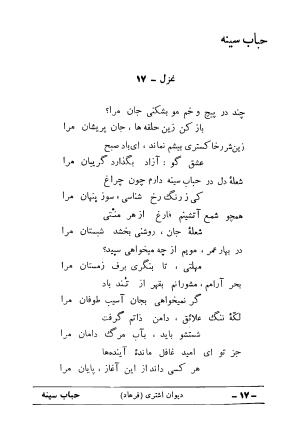 حباب سینه
غزل - ۱۷
چند در پیچ و خم مو بشکنی جان مرا؟
باز کن زین حلقه ها ، جان پریشان مرا
زین شرر خاکستری بیشم نماند ، ای باد صبح
عشق گو : آزاد بگذارد گریبان مرا
شعلهٔ دل در حباب سینه دارم چون چراغ
کی ز رنگ رخ شناسی ، سوز پنهان مرا
همچو شمع آتشینم فارغ از هر منتی
شعلهٔ جان ، روشنی بخشد شبستان مرا
در بهار عمر ، مویم از چه میخواهی سپید؟
مهلتی ، تا بنگری برف زمستان مرا
بحر آرامم ، مشورانم بقهر از تند باد
گر نمیخواهی بجان آسیب طوفان مرا
لکهٔ ننگ علائق ، دامن ذاتم گرفت
شستشو باید ، بآب مرگ دامان مرا
جز تو ای امید غافل ماندهٔ آینده‌ها
هر کسی داند از این آغاز ، پایان مرا
- ۱۷ - دیوان اشتری (فرهاد) حباب سینه